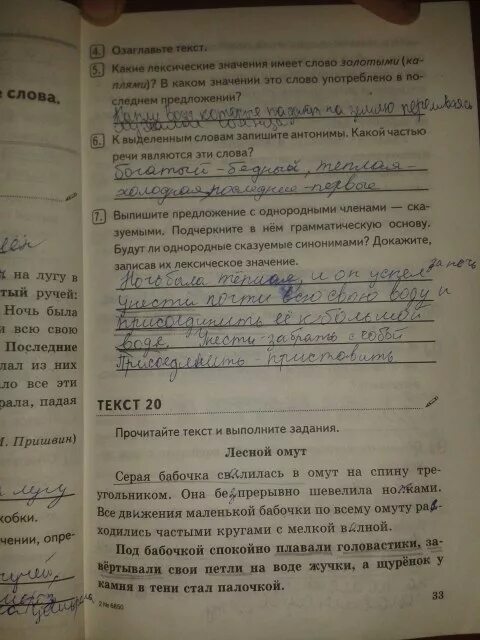 е слова,
на лугу в
тый ручей:
Ночь была
и всю свою
Последние
лал из них
ло все эти
рала, падая
М. Пришвин)
лугу
кобки.
чении, опре-
4. Озаглавьте текст.
5. Какие лексические значения имеет слово золотыми (ка-
плями)? В каком значении это слово употреблено в по-
следнем предложении?
Капли воды которые падают на землю переливаясь
6. К выделенным словам запишите антонимы. Какой частью
речи являются эти слова?
богатый - бедный, тёплая -
холодная, последнее - первые
7. Выпишите предложение с однородными членами — ска-
зуемыми. Подчеркните в нём грамматическую основу.
Будут ли однородные сказуемые синонимами? Докажите,
записав их лексическое значение.
Ночь была тёплая, и он успел за ночь
унести почти всю свою воду и
присоединить её к большой
воде. Унести - забрать с собой
Присоединить - приставить
ТЕКСТ 20
Прочитайте текст и выполните задания.
Лесной омут
Серая бабочка свалилась в омут на спину тре-
угольником. Она безпрерывно шевелила ножками.
Все движения маленькой бабочки по всему омуту рас
ходились частыми кругами с мелкой волной.
Под бабочкой спокойно плавали головастики, за-
вёртывали свои петли на воде жучки, а щурёнок у
камня в тени стал палочкой.
2 № 6850
33